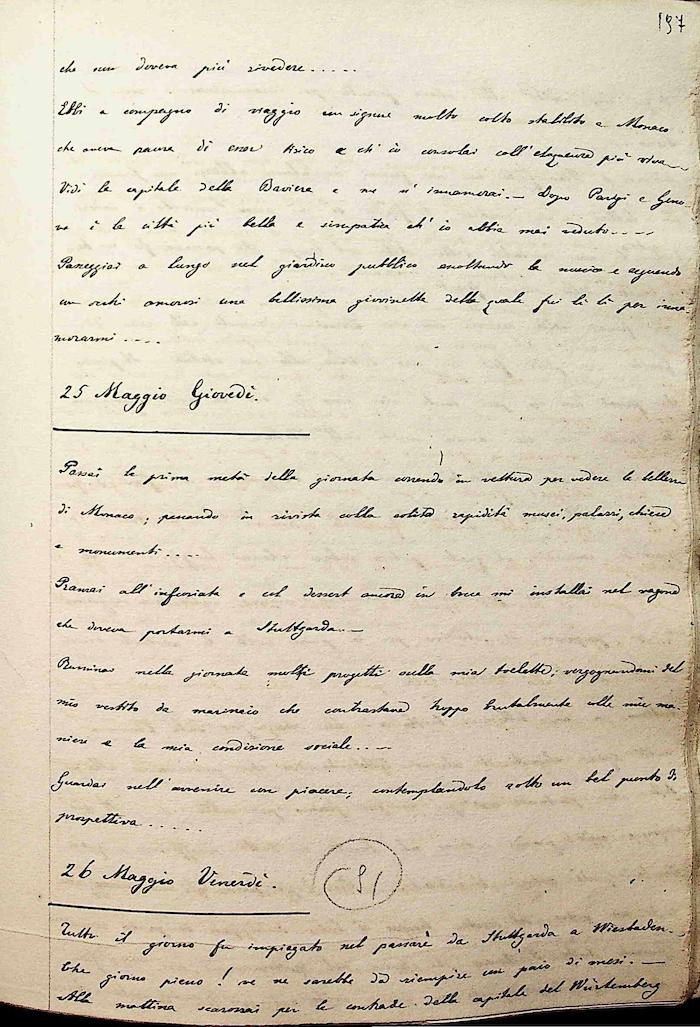 197
che non doveva più rivedere.....
Ebbi a compagno di viaggio un signore molto colto stabilito a Monaco
che aveva paura di esser tisico e ch'io consolai coll'eloquenza più viva
Vidi la capitale della Baviera e me n'innamorai. — Dopo Parigi e Geno
va è la città più bella e simpatica ch'io abbia mai veduto.....
Passeggiai a lungo nel giardino pubblico ascoltando la musica e seguendo
con occhi amorosi una bellissima giovinetta della quale fui lì lì per inna
morarmi....
25 Maggio Giovedì.
Passai la prima metà della giornata correndo in vettura per vedere le bellezze
di Monaco; passando in rivista colla solita rapidità musei, palazzi, chiese
e monumenti....
Pranzai all'infuriata e col dessert ancora in bocca mi installai nel vagone
che doveva portarmi a Stuttgarda. —
Ruminai nella giornata molti progetti sulla mia toelette; vergognandomi del
mio vestito da marinaio che contrastava troppo brutalmente colle mie ma-
niere e la mia condizione sociale....
Guardai nell'avvenire con piacere; contemplandolo sotto un bel punto di
prospettiva......
26 Maggio Venerdì.
Tutto il giorno fu impiegato nel passare da Stuttgarda a Wiesbaden. —
Che giorno pieno! ve ne sarebbe da riempire un paio di mesi. —
Alla mattina scarrozzai per le contrade della capitale del Würtemberg